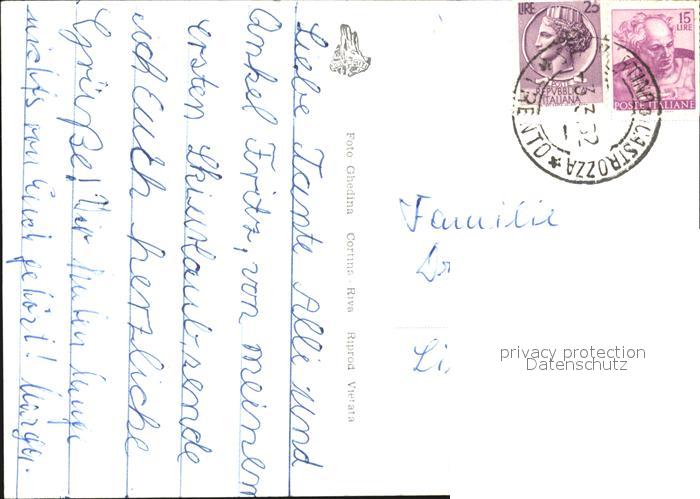 Liebe Tante Alli und
Onkel Fritz, von meinem
ersten Skiurlaub sende
ich Euch herzliche
Grüße! Wir haben lange
nichts von Euch gehört!
Foto Ghedina Cortina - Riva Riprod Vietata
LIRE 25
REPVBBLICA
ITALIANA
15
LIRE
POSTE ITALIANE
Familie
Dr
privacy protection
Datenschutz